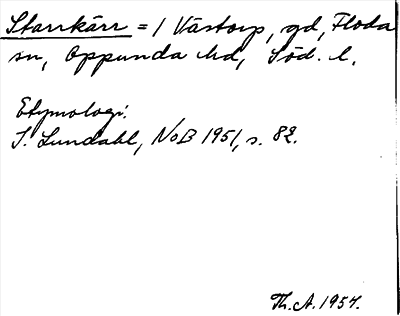 Starrkärr = / Västorp, gd, Floda
sn, Oppunda hd, Söd. l.
Etymologi.
I. Lundahl, NoB 1951, s. 82.
Th. A. 1954.